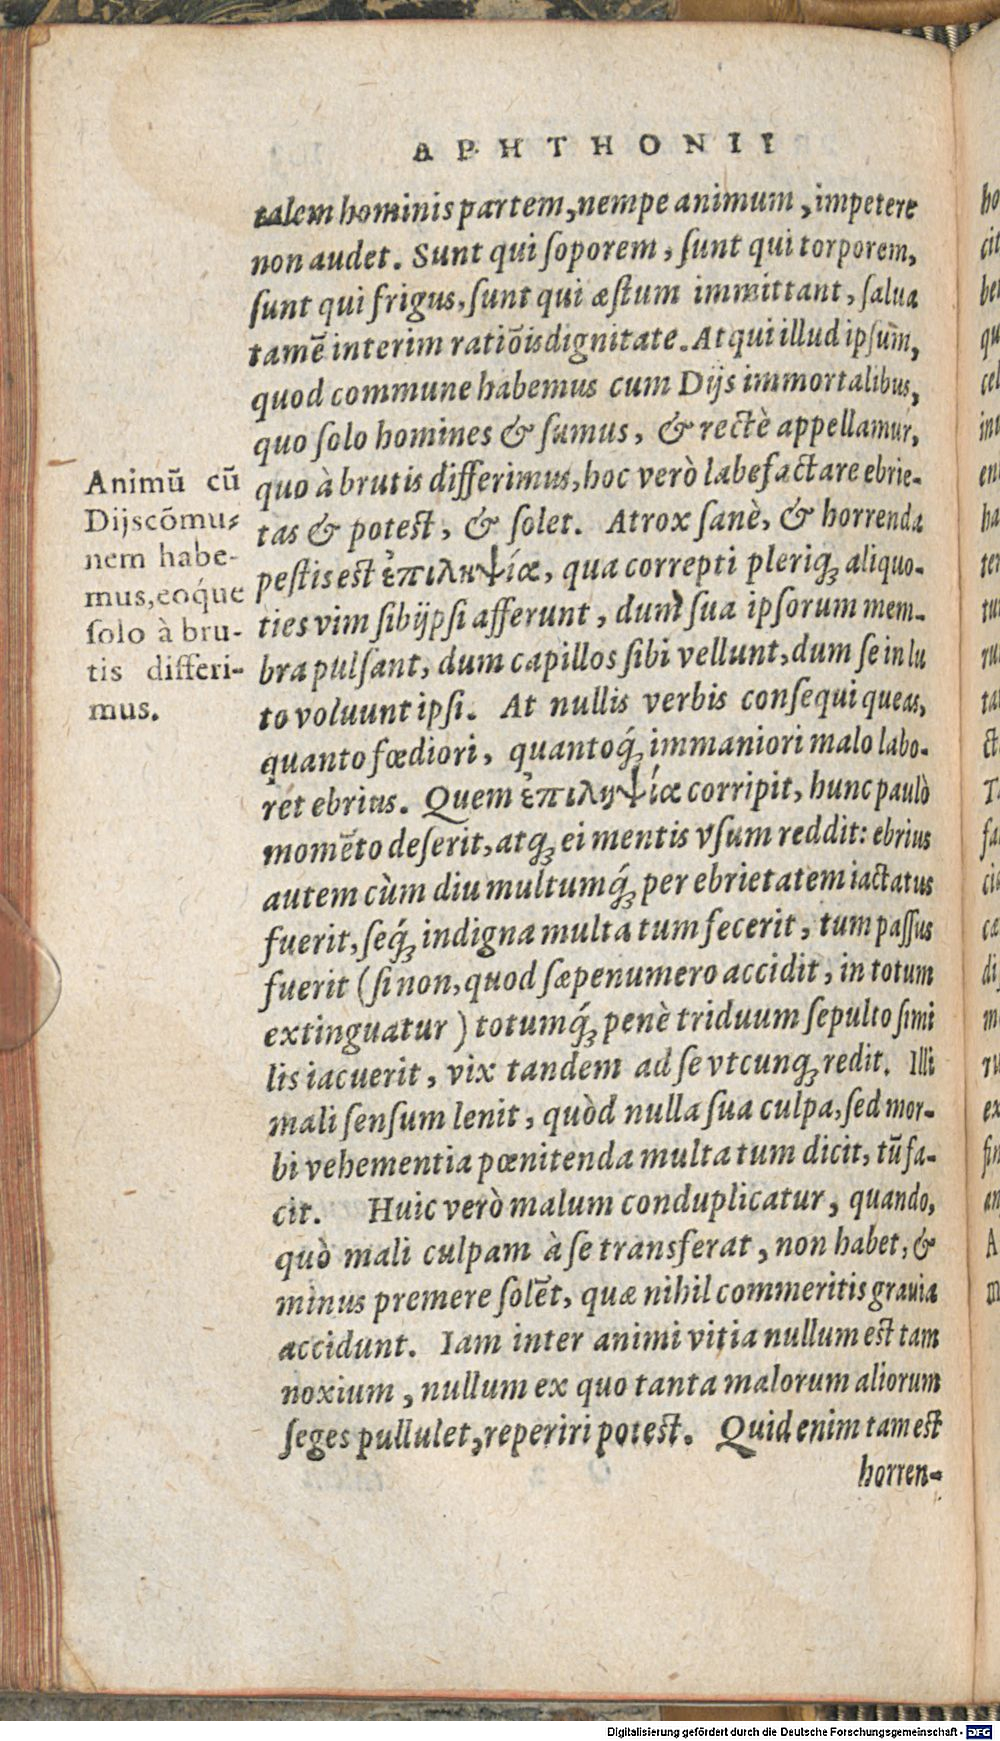 APHTHONII
talem hominis partem, nempe animum, impetere
non audet. Sunt qui ſoporem, ſunt qui torporem,
ſunt qui frigus, ſunt qui æſtum immittant, ſalua
tamē interim ratiōis dignitate. Atqui illud ipſum,
quod commune habemus cum Dijs immortalibus,
quo ſolo homines & ſumus, & rectè appellamur,
quo à brutis differimus, hoc verò labefactare ebrie-
tas & poteſt, & ſolet. Atrox ſanè, & horrenda
peſtis est ἐπιληψία, qua correpti pleriq; aliquo-
ties vim ſibijpſi afferunt, dum ſua ipſorum mem-
bra pulſant, dum capillos ſibi vellunt, dum ſe in lu
to voluunt ipſi. At nullis verbis conſequi queas,
quanto fœdiori, quantoq́; immaniori malo labo-
ret ebrius. Quem ἐπιληψία corripit, hunc paulò
momēto deſerit, atq; ei mentis vſum reddit: ebrius
autem cùm diu multumq́; per ebrietatem iactatus
fuerit, ſeq́; indigna multa tum fecerit, tum paſſus
fuerit (ſi non, quod ſæpenumero accidit, in totum
extinguatur) totumq́; penè triduum ſepulto ſimi
lis iacuerit, vix tandem ad ſe vtcunq; redit. Illi
mali ſenſum lenit, quòd nulla ſua culpa, ſed mor-
bi vehementia pœnitenda multa tum dicit, tū fa-
cit. Huic verò malum conduplicatur, quando,
quò mali culpam à ſe transferat, non habet, &
minus premere ſolēt, quæ nihil commeritis grauia
accidunt. Iam inter animi vitia nullum est tam
noxium, nullum ex quo tanta malorum aliorum
ſeges pullulet, reperiri potest. Quid enim tam est
horren-
Animū cū
Dijs cōmu-
nem habe-
mus, eoq́ue
ſolo à bru-
tis differi-
mus.
Digitalisierung gefördert durch die Deutsche Forschungsgemeinschaft - DFG